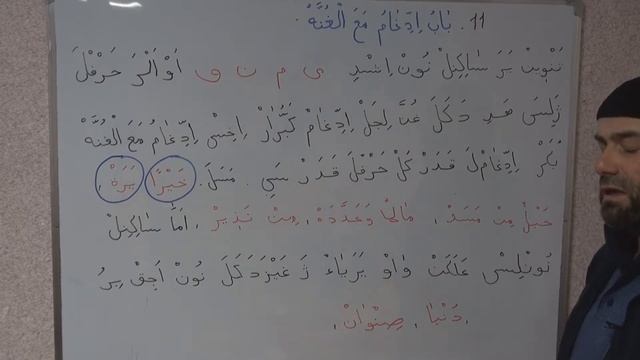 11. بَابُ اِدِّغَامُ مَعَ الْغُنَّهْ
تَنْوِينْ بَرَ سَاكِيلْ نُونْ اِسْدِ ى م ن و اَوْ اَلْرَ حَرْفْلَ
ژِلِسَىِ هَدِ دَكَلَ غُنَّ لِجِلْ اِدِّغَامْ كَبُّرَارْ رَاخِسْىِ اِدِّغَامُ مَعَ الْغُنَّهْ
بُكَرْ اِدِّغَامْلَ قَدَرْ كَلْ حَرْفِلَ قَدَرْ سَىِ . مَسَلَ . خَيْرًا يَرَهْ ،
حَبْلٌ مِنْ مَسَدْ ، مَالًا وَعَدَّدَهْ ، مِنْ نَذِيرْ ، اَمَّا سَاكِيلْ
نُونْلِسْىِ عَلَكَتْ وَاوْ يَرْيَاءْ ژَ غَيْزِدَكَلَ نُونْ اَجِقْ يِرُ
، دُنْيَا ، صِنْوَانْ ،